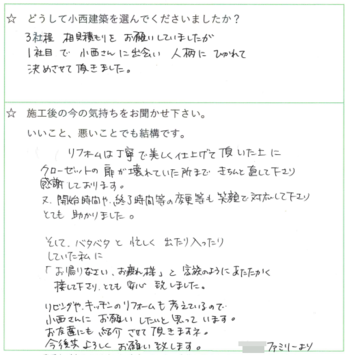 ☆ どうして小西建築を選んでくださいましたか？
3社程 相見積もりを お願いしていましたが
1社目で 小西さんに出会い 人柄に ひかれて
決めさせて頂きました。
☆ 施工後の今の気持ちをお聞かせ下さい。
いいこと、悪いことでも結構です。
リフォームは丁寧で美しく仕上げて 頂いた上に
クローゼットの 扉が壊れていた所まで きちんと直して下さり
感謝しております。
又、開始時間や、終了時間等の変更等も 笑顔で対応して下さり
とても 助かりました。
そして、バタバタと 忙しく 出たり入ったり
していた私に
「お帰りなさい、お疲れ様」と 家族のようにあたたかく
接して下さり、とても 安心 致しました。
リビングや、キッチンのリフォームも考えているので
小西さんに お願いしたいと思っています。
お友達にも 紹介 させて 頂きますね。
今後共 よろしく お願い致します。
ファミリーより